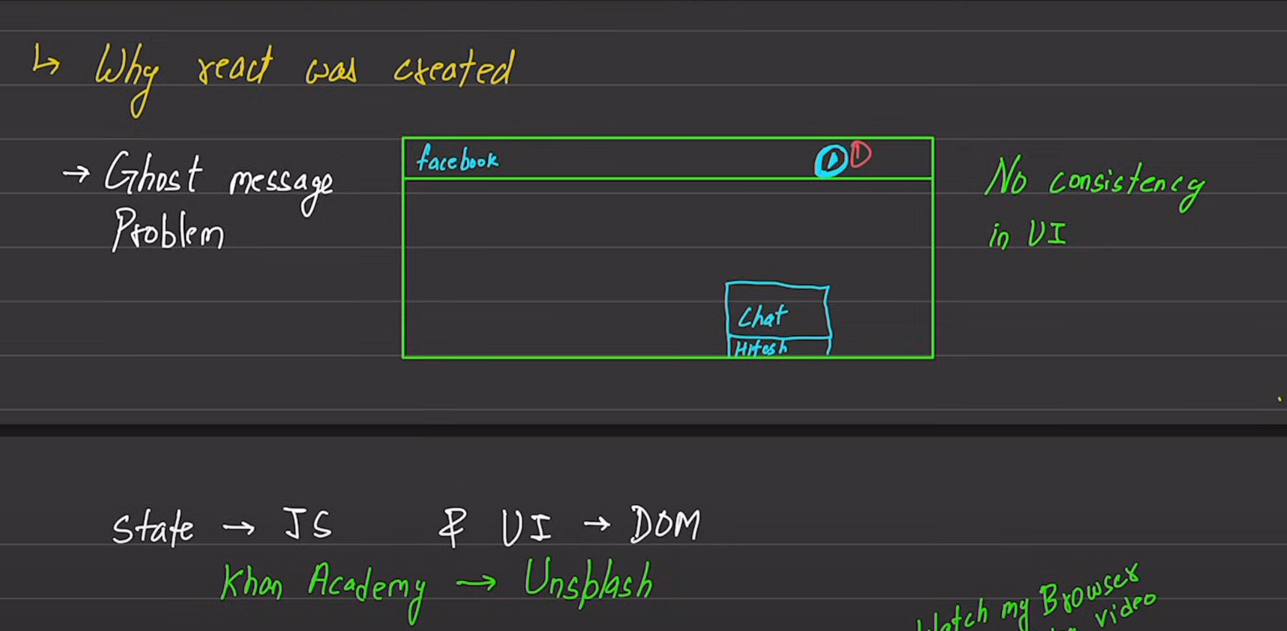 ↳ Why react was created
→ Ghost message
Problem
facebook
1
Chat
Hitesh
No consistency
in UI
State → JS & UI → DOM
Khan Academy → Unsplash
Watch my Browser
video